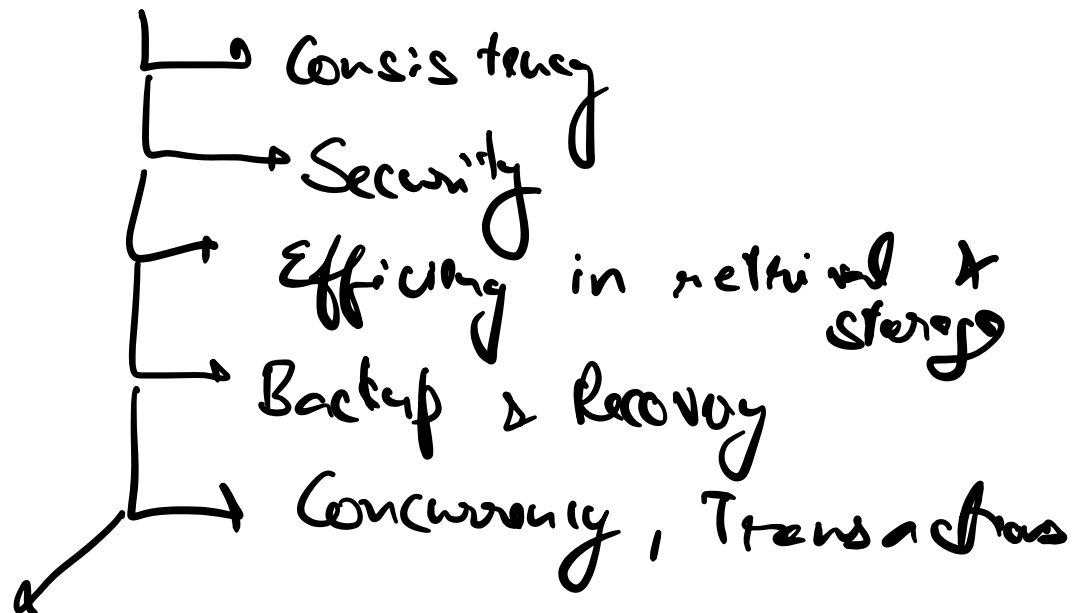 Consistency
Security
Efficiency in retrival &
storage
Backup & Recovery
Concurrency, Transactions